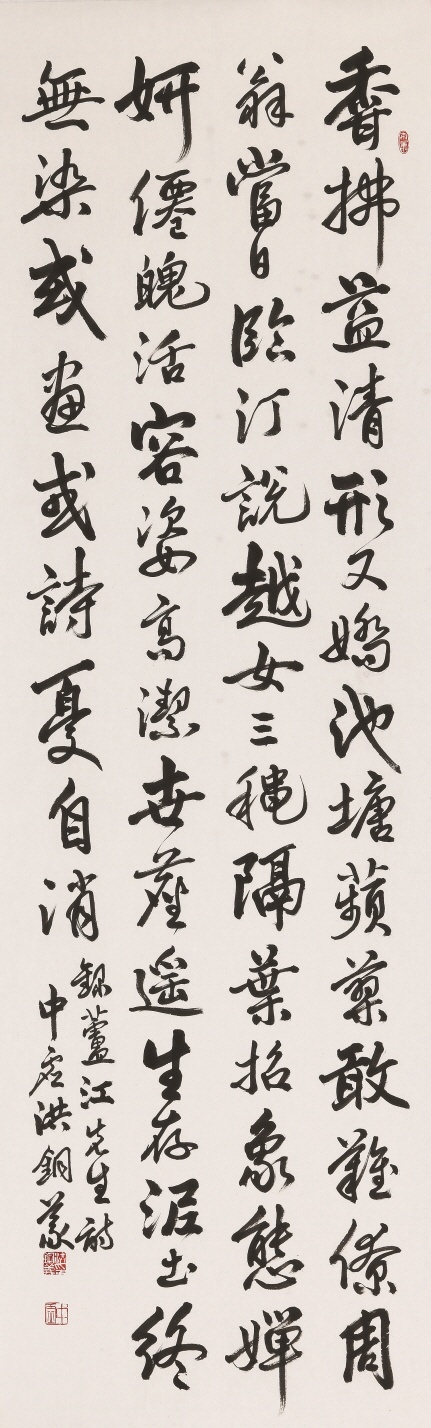 香拂益清形又嬌池塘蘋藻敢難僚周
翁當日臨汀說越女三穐隔葉招象態嬋
妍僊魄活容姿高潔世塵遥生存泥土終
無染或畫或詩憂自消
錄蘆江先生詩
中洪銅義